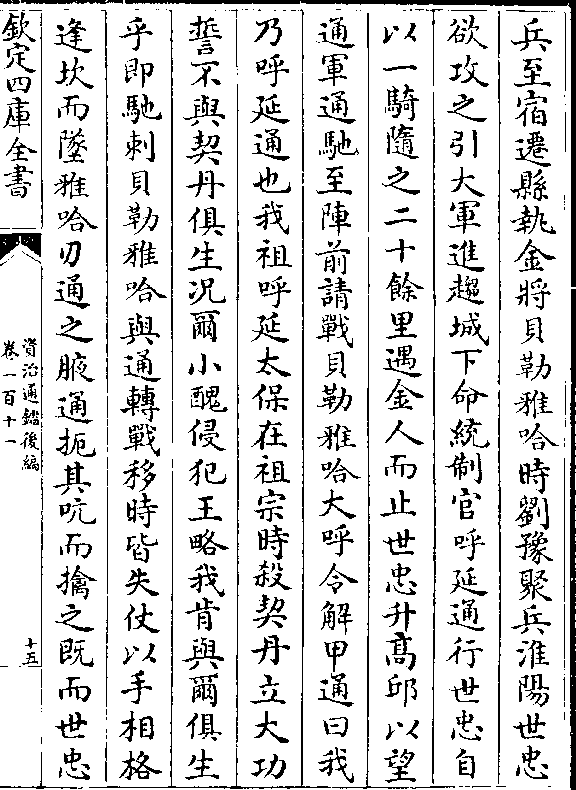 兵至宿遷縣執金將貝勒雅哈時劉豫聚兵淮陽世忠
欲攻之引大軍進趨城下命統制官呼延通行世忠自
以一騎隨之二十餘里遇金人而止世忠升髙邱以望
通軍通馳至陣前請戰貝勒雅哈大呼令解甲通曰我
乃呼延通也我祖呼延太保在祖宗時殺契丹立大功
誓不與契丹俱生况爾小醜侵犯王略我肯與爾俱生
乎即馳刺貝勒雅哈與通轉戰移時皆失仗以手相格
逢坎而墜雅哈刃通之腋通扼其吭而擒之既而世忠
欽定四庫全書
資治通鑑後編
卷一百十一
十五